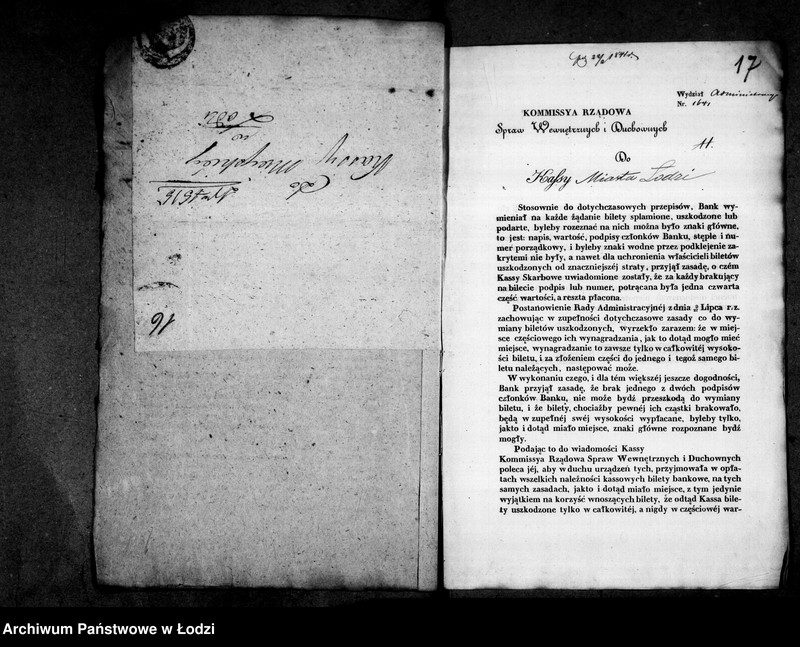 Do
Kassy Miejskiej
w
Łodzi
16
17
Wydział Administracyjny
Nr.
KOMMISSYA RZĄDOWA
Spraw Wewnętrznych i Duchownych
Do
Kassy Miasta Łodzi
Stosownie do dotychczasowych przepisów, Bank wy-
mieniał na każde żądanie bilety splamione, uszkodzone lub
podarte, byleby rozeznać na nich można było znaki główne,
to jest: napis, wartość, podpisy członków Banku, stęple i nu-
mer porządkowy, i byleby znaki wodne przez podklejenie za-
krytemi nie były, a nawet dla uchronienia właścicieli biletów
uszkodzonych od znaczniejszéj straty, przyjął zasadę, o czém
Kassy Skarbowe uwiadomione zostały, że za każdy brakujący
na bilecie podpis lub numer, potrącana była jedna czwarta
część wartości, a reszta płacona.
Postanowienie Rady Administracyjnéj z dnia 3 Lipca r. z.
zachowując w zupełności dotychczasowe zasady co do wy-
miany biletów uszkodzonych, wyrzekło zarazem: że w miej-
sce częściowego ich wynagradzania, jak to dotąd mogło mieć
miejsce, wynagradzanie to zawsze tylko w całkowitéj wysoko-
ści biletu, i za złożeniem części do jednego i tegoż samego bi-
letu należących, następować może.
W wykonaniu czego, i dla tém większéj jeszcze dogodności,
Bank przyjął zasadę, że brak jednego z dwóch podpisów
członków Banku, nie może bydź przeszkodą do wymiany
biletu, i że bilety, chociażby pewnéj ich cząstki brakowało,
będą w zupełnéj swéj wysokości wypłacane, byleby tylko,
jakto i dotąd miało miejsce, znaki główne rozpoznane bydź
mogły.
Podając to do wiadomości Kassy
Kommissya Rządowa Spraw Wewnętrznych i Duchownych
poleca jéj, aby w duchu urządzeń tych, przyjmowała w opła-
tach wszelkich należności kassowych bilety bankowe, na tych
samych zasadach, jakto i dotąd miało miejsce, z tym jedynie
wyjątkiem na korzyść wnoszących bilety, że odtąd Kassa bile-
ty uszkodzone tylko w całkowitéj, a nigdy w częściowéj war-
Archiwum Państwowe w Łodzi